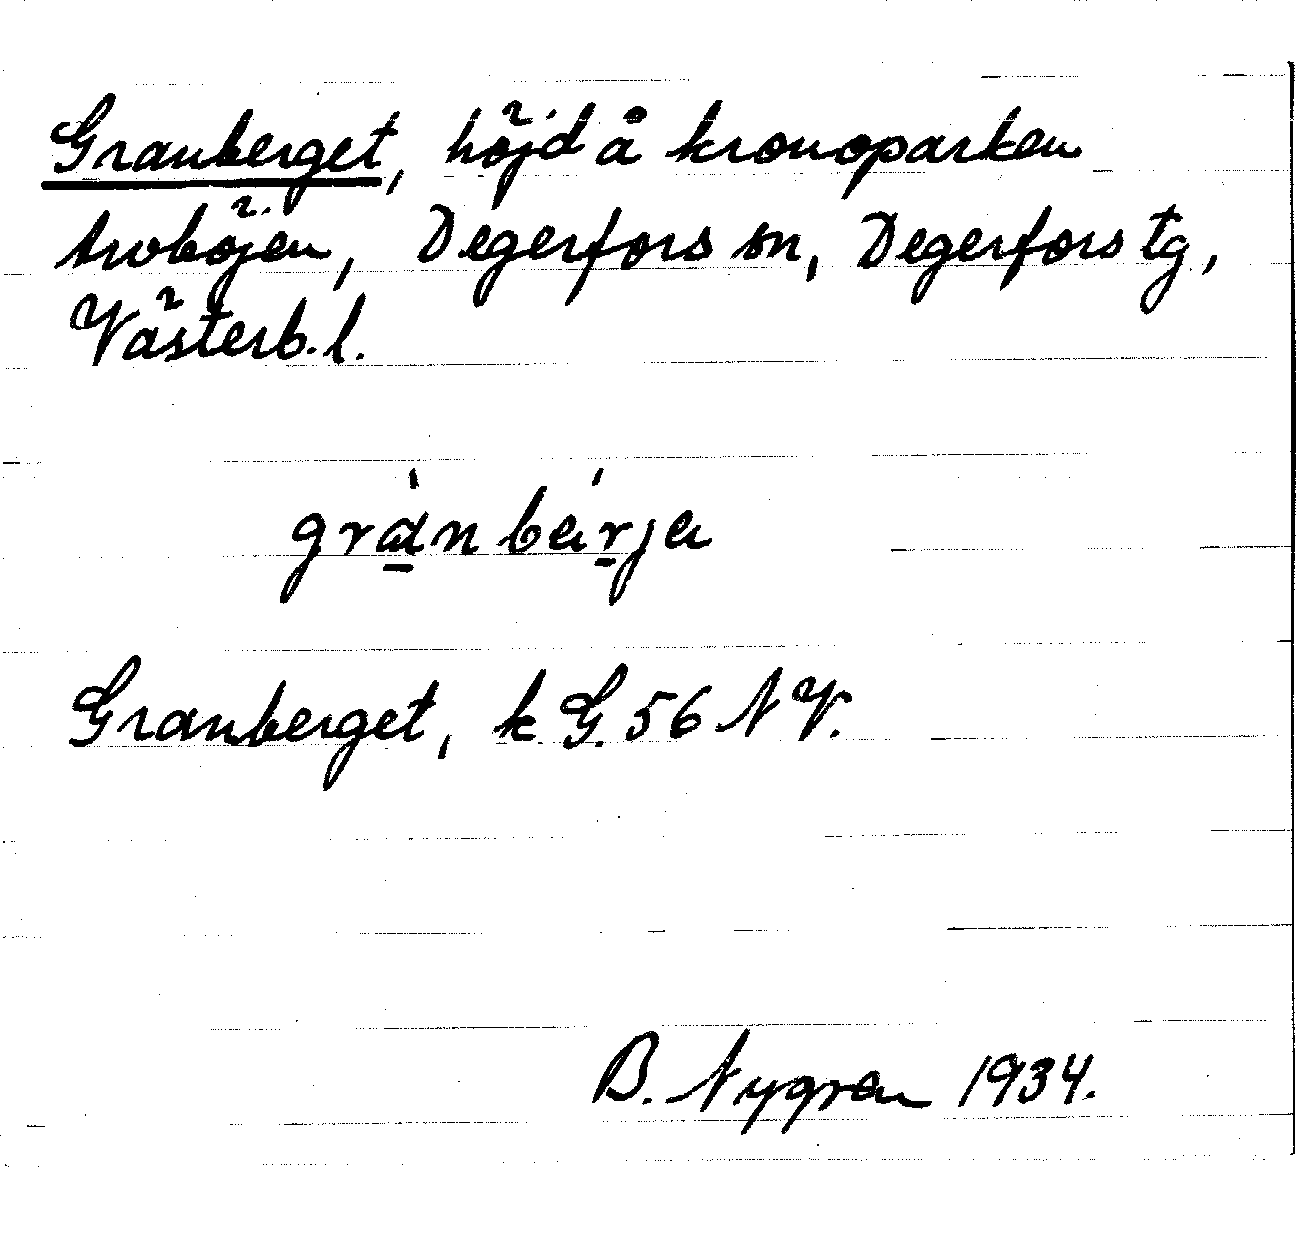 Granberget, höjd å kronoparken
Avböjen, Degerfors sn, Degerfors tg,
Västerb. l.
grànbárja
Granberget, k G. 56 NV.
B. Nygren 1934.